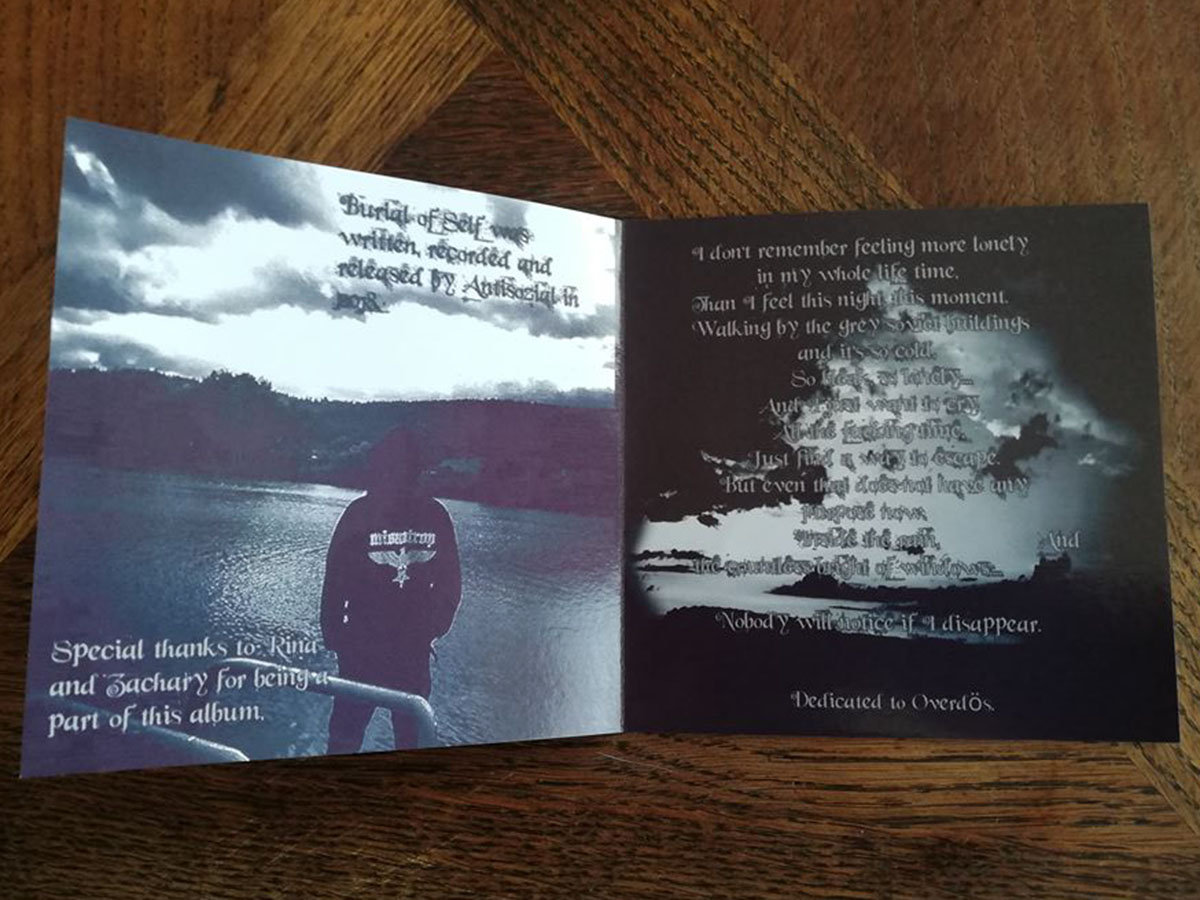 Burial of Self was
written, recorded and
released by Antisozial in
misotrop
Special thanks to Rina
and Zachary for being a
part of this album.
I don't remember feeling more lonely
in my whole life time.
Than I feel this night this moment.
Walking by the grey soviet buildings
and it's so cold.
So lonely...
And I just want to cry
All the fucking time.
Just find a way to escape.
But even that does not have any
purpose now.
the pain, And
the countless light of windows...
Nobody will notice if I disappear.
Dedicated to Overdös.